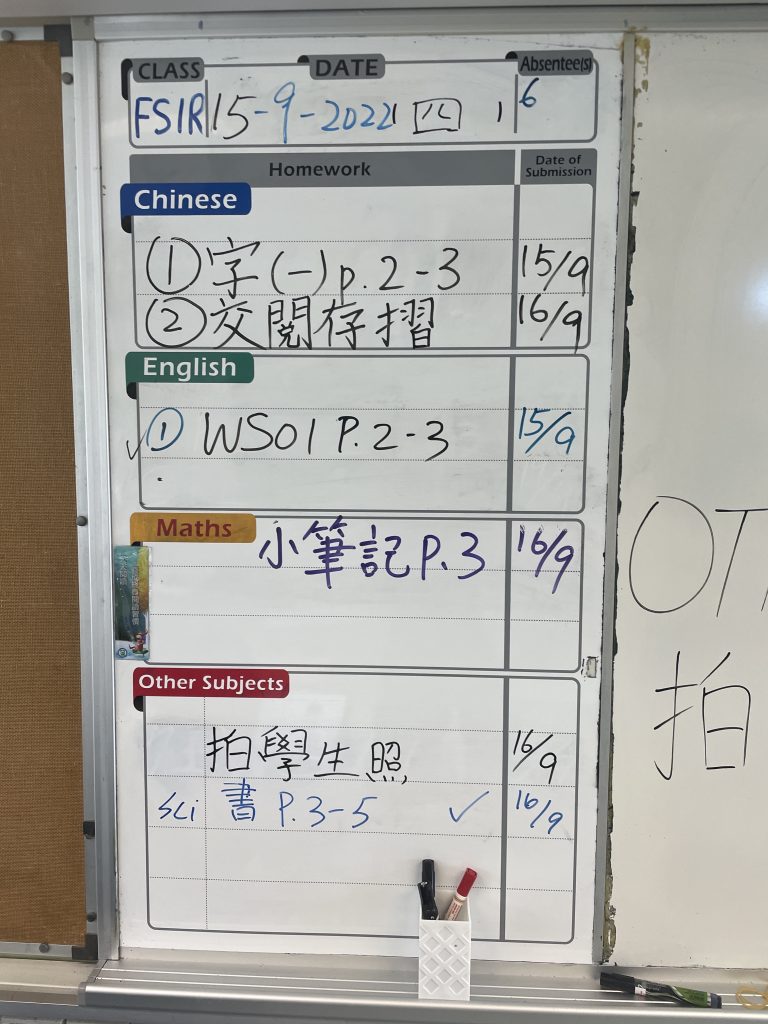 CLASS DATE Absentee(s)
FS1R 15-9-2022 (四) 6
Homework Date of Submission
Chinese
① 字(一) p. 2-3 15/9
② 交閱存摺 16/9
English
✓ ① WS01 P. 2-3 15/9
Maths 小筆記 P.3 16/9
Other Subjects
拍學生照 16/9
Sci 書 P.3-5 ✓ 16/9
拍